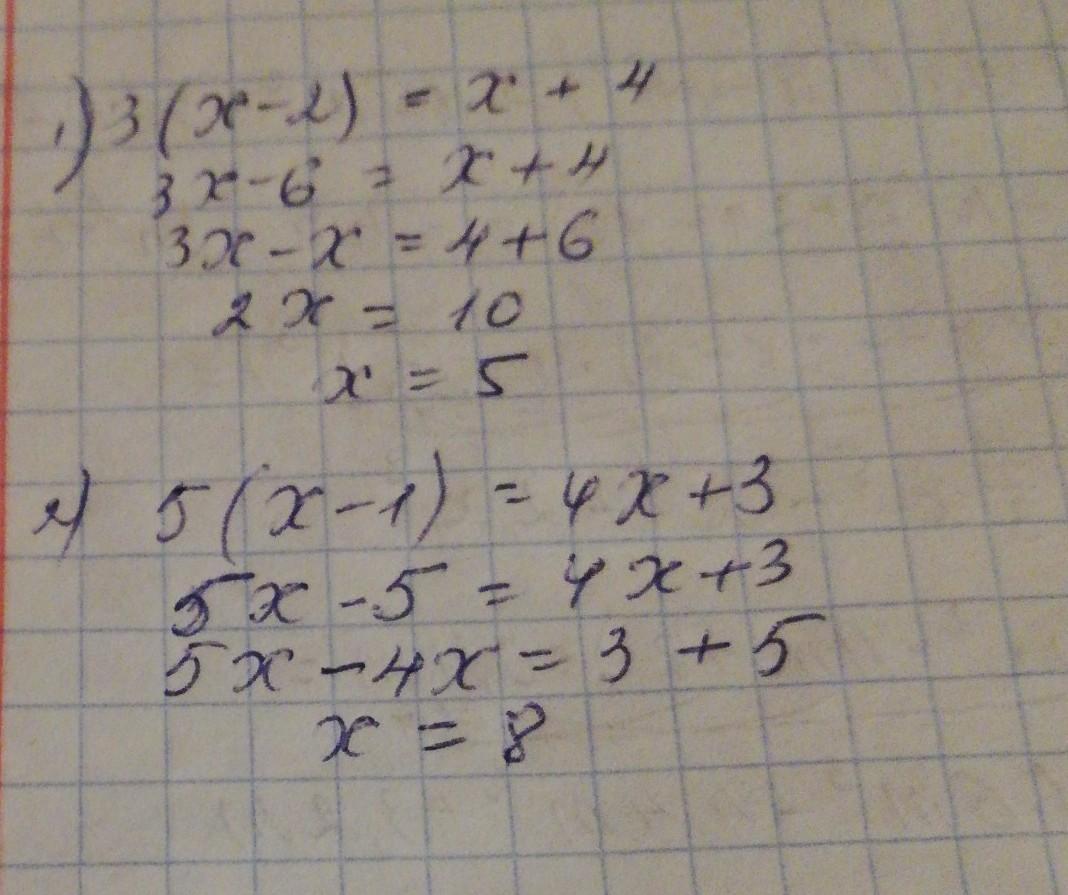 1) 3(x-2) = x + 4
3x-6 = x+4
3x-x = 4+6
2x = 10
x = 5
2) 5(x-1) = 4x+3
5x-5 = 4x+3
5x-4x = 3+5
x = 8